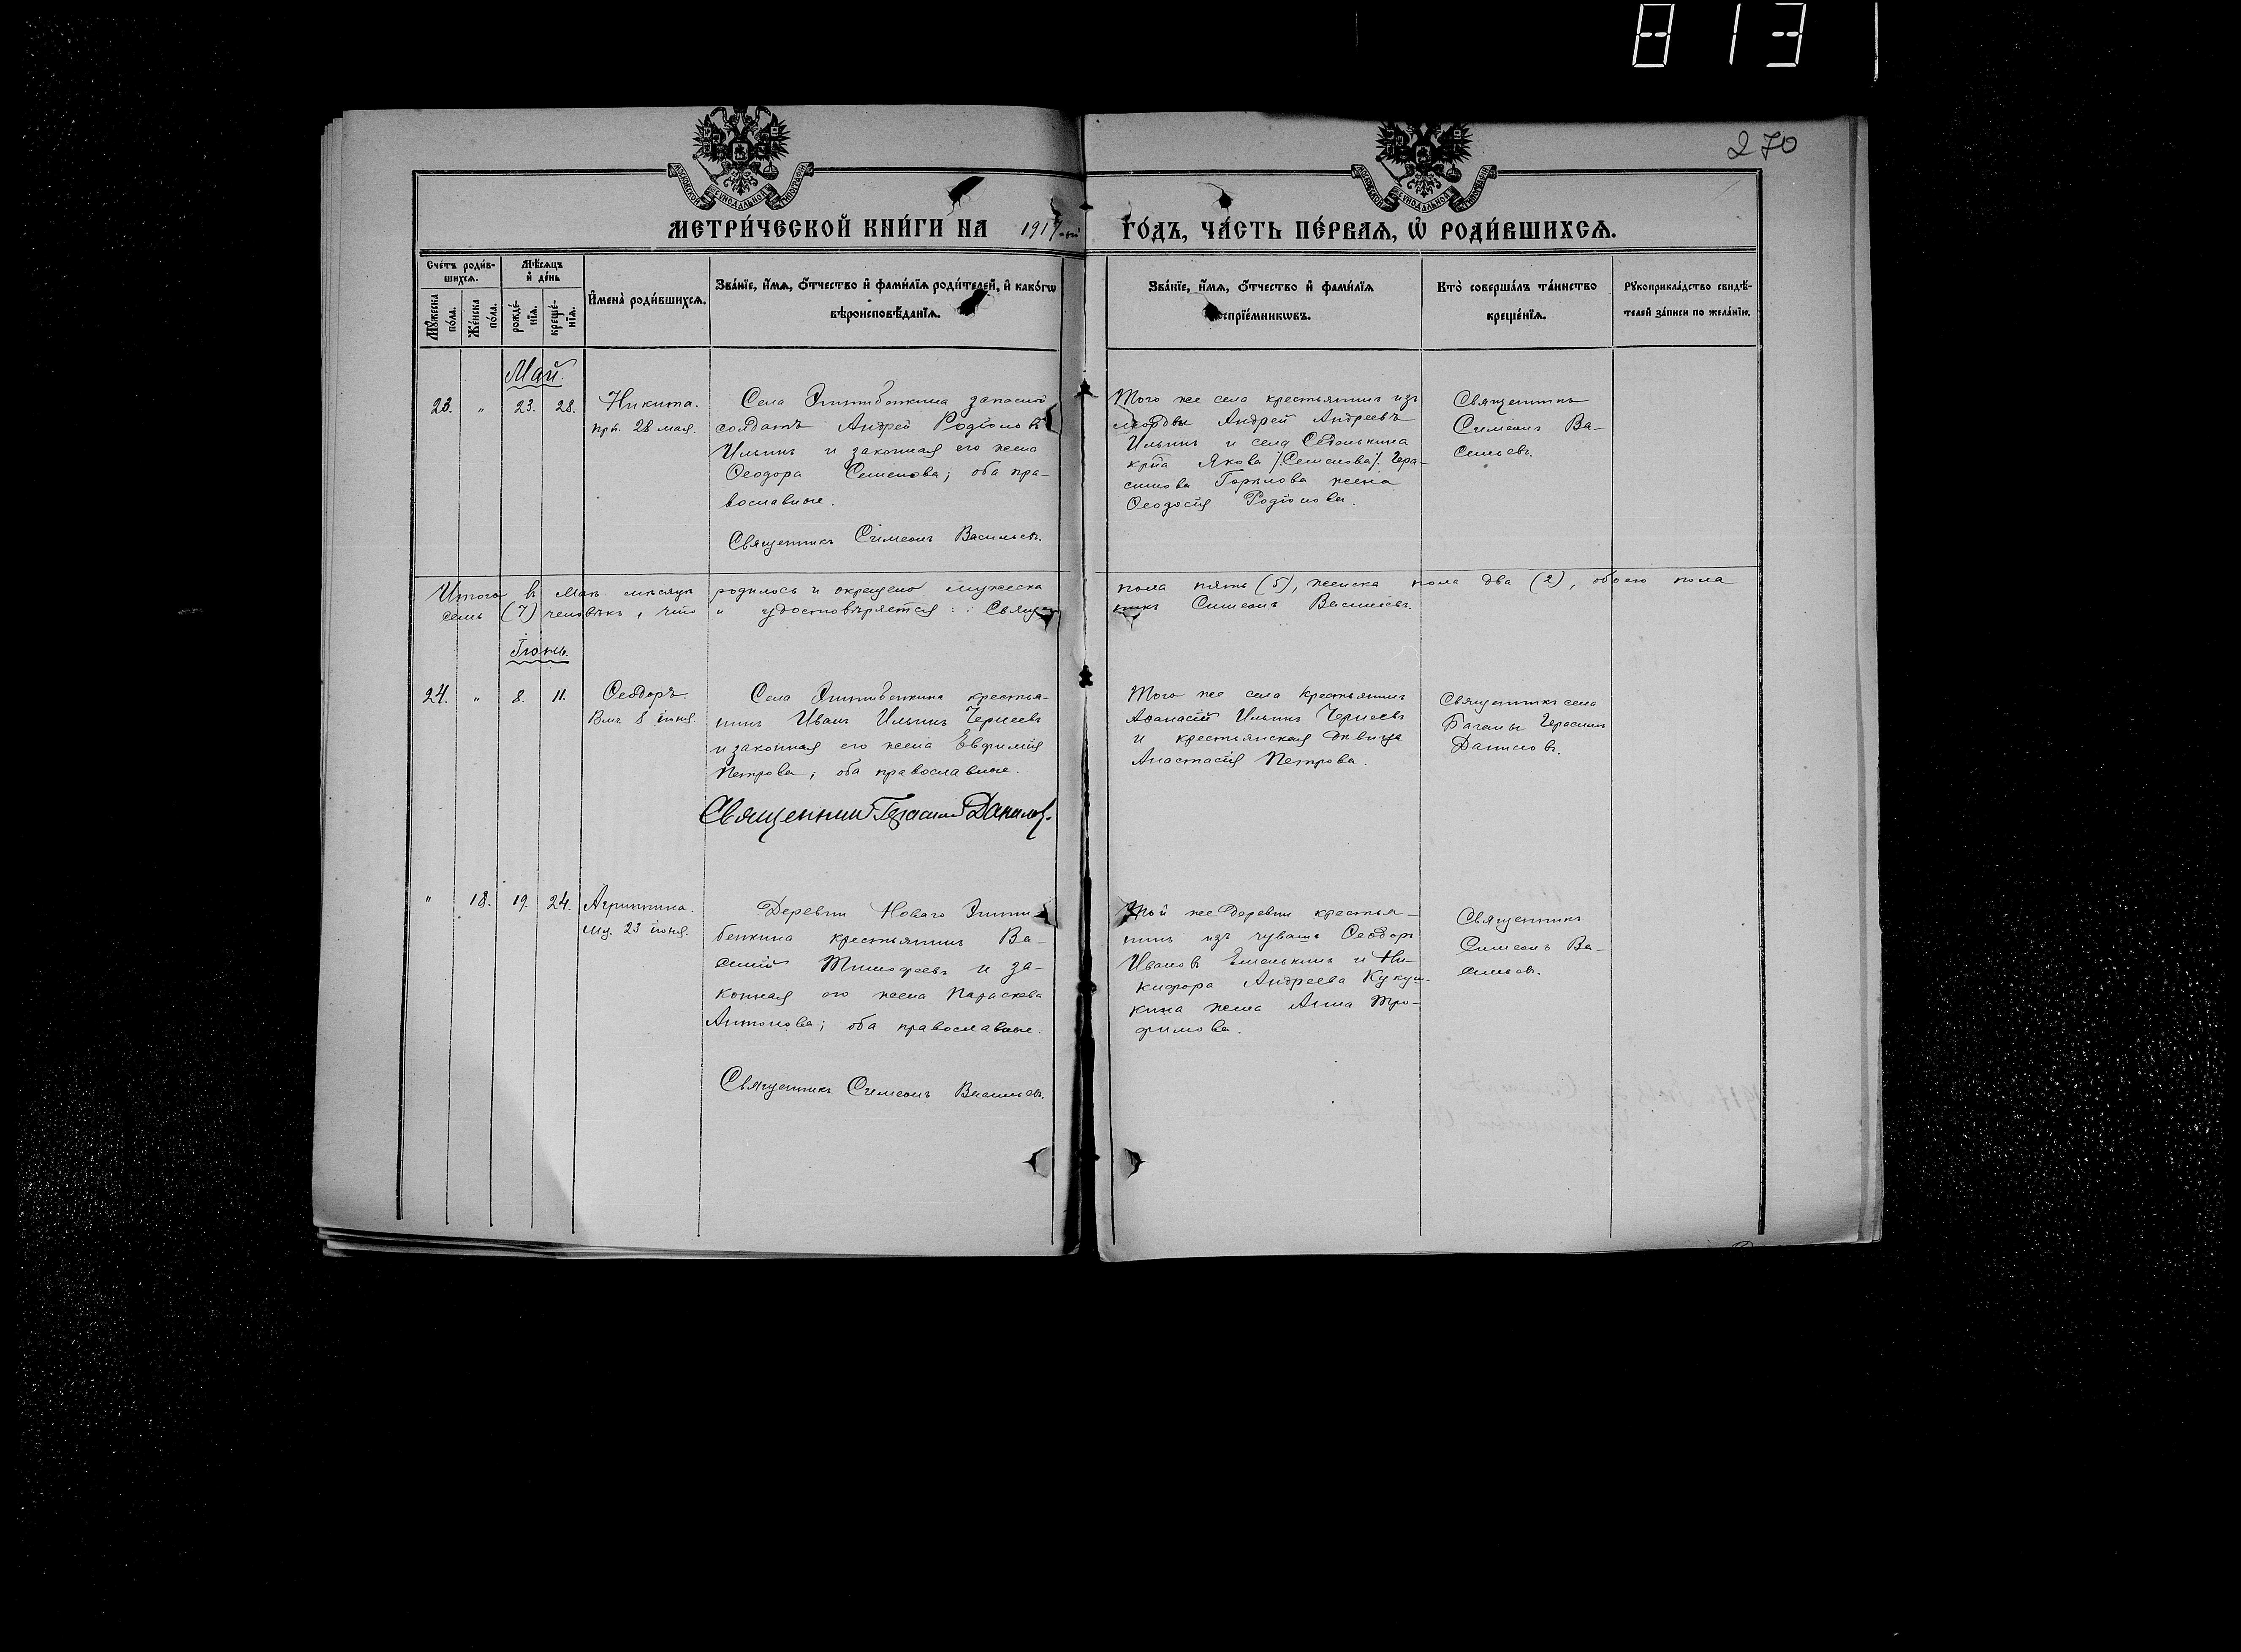 813
270
МОСКОВСКОЙ СѴНОДАЛЬНОЙ ТИПОГРАФІИ
МОСКОВСКОЙ СѴНОДАЛЬНОЙ ТИПОГРАФІИ
МЕТРИ́ЧЕСКОЙ КНИ́ГИ НА 1917-ый ГО́ДЪ, ЧА́СТЬ ПЕ́РВАѦ, Ѡ҆ РОДИ́ВШИХСѦ.
Сче́тъ роди́в-
шихсѧ.
Мꙋ́жеска
по́ла.
Же́нска
по́ла.
Мѣ́сѧцъ
и҆ де́нь
рожде́-
нїѧ.
креще́-
нїѧ.
И҆мена̀ роди́вшихсѧ.
Зва́нїе, и҆́мѧ, ѻ҆́тчество и҆ фами́лїѧ роди́телей, и҆ како́гѡ
вѣроисповѣ́данїѧ.
Зва́нїе, и҆́мѧ, ѻ҆́тчество и҆ фами́лїѧ
воспрїе́мникѡвъ.
Кто̀ соверша́лъ та́инство
креще́нїѧ.
Рꙋкоприкла́дство свидѣ́-
телей за́писи по жела́нїю.
Май.
23. " 23. 28.
Никита.
пр. 28 мая.
Села запасной
солдатъ Андрей Родіоновъ
Ильинъ и законная его жена
Ѳеодора Семенова; оба пра-
вославные.
Священникъ Сѵмеонъ Васильевъ.
Того же села крестьянинъ изъ
мордвы Андрей Андреевъ
Ильинъ и села Седенькина
кр-на Якова /Семенова/. Гера-
симова Горшлова жена
Ѳеодосія Родіонова.
Священникъ
Сѵмеонъ Ва-
сильевъ.
Итого въ Маѣ мѣсяцѣ родилось и окрещено мужеска пола пять (5), женска пола два (2), обоего пола
семь (7) человѣкъ, что " удостовѣряется: Священникъ Симеонъ Васильевъ.
Іюнь.
24. " 8. 11.
Ѳеодоръ.
Вмч. 8 іюня.
Села крестья-
нинъ Иванъ Ильинъ Чернеевъ
и законная его жена Евфимія
Петрова; оба православные.
Священникъ Герасимъ Даниловъ.
Того же села крестьянинъ
Аѳанасій Ильинъ Чернеевъ
и крестьянская дѣвица
Анастасія Петрова.
Священникъ села
Баганы Герасимъ
Даниловъ.
" 18. 19. 24.
Агриппина.
Мц. 23 іюня.
Деревни Новаго
крестьянинъ Ва-
силій Тимофеевъ и за-
конная его жена Параскева
Антонова; оба православные.
Священникъ Сѵмеонъ Васильевъ.
Той же деревни крестья-
нинъ изъ чувашъ Ѳеодоръ
Ивановъ Емелькинъ и Ни-
кифора Андреева Кукуш-
кина жена Анна Тро-
фимова.
Священникъ
Симеонъ Ва-
сильевъ.